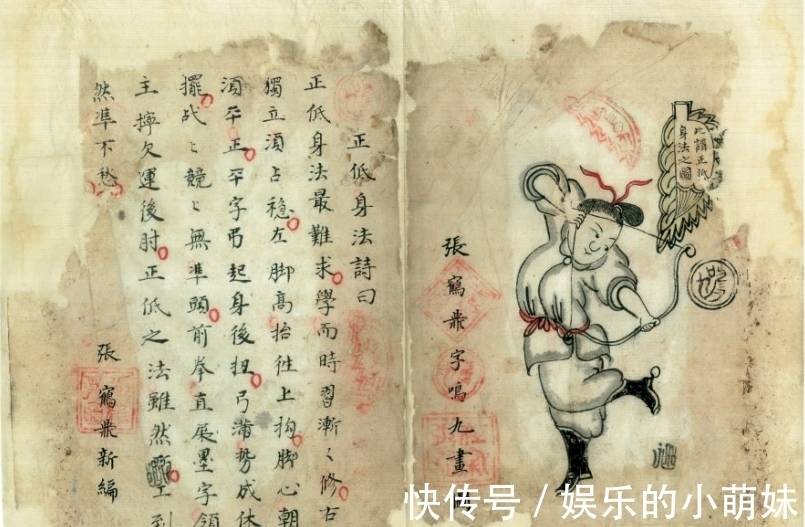 此謂正低
身法之圖
張鶴鼎字鳴九畫
正低身法詩曰
正低身法最難求學而時習漸〻修右
獨立須占穩左脚高抬徃上鈎脚心朝
須平正平字弔起身後扭弓滿勢成休
擺战〻競〻無準頭前拳直展墨字領
主擰欠運後肘正低之法雖然到
然準不愁
張鶴鼎新編
快传号/娱乐的小萌妹